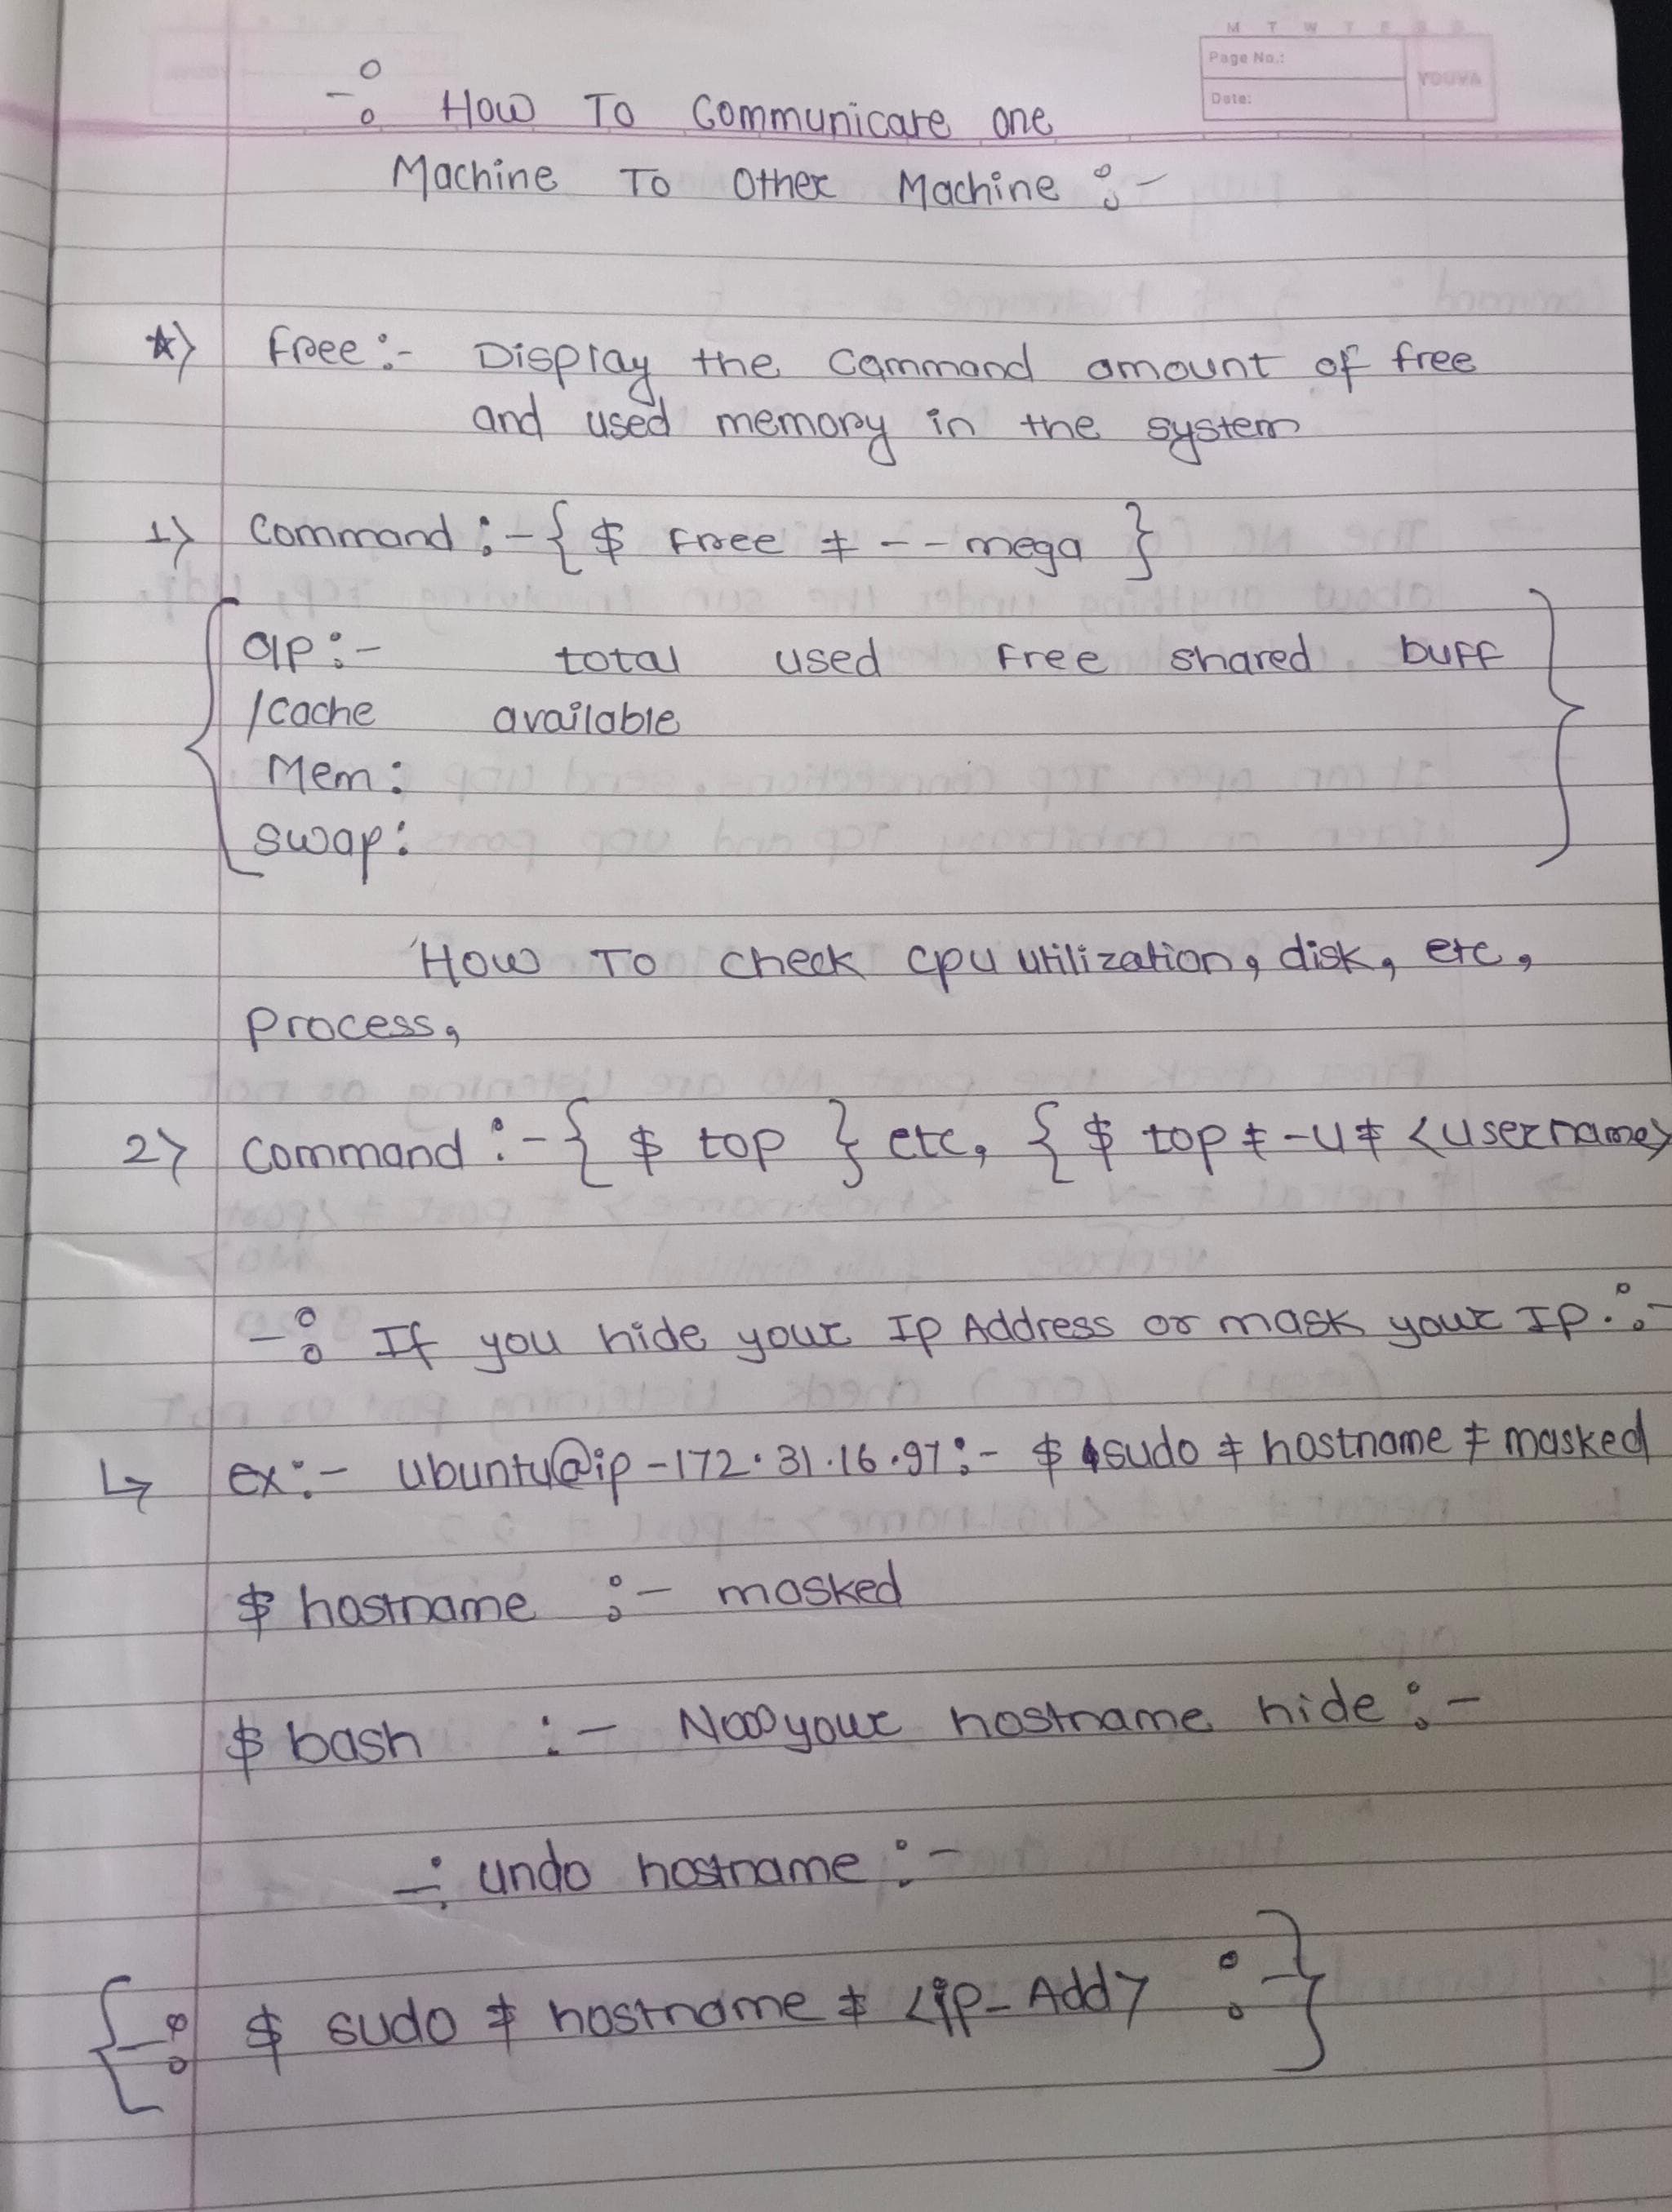 M T W T F S S
Page No.:
Date:
YOUVA
-: How To Communicare one
Machine To Other Machine :-
☆) free :- Display the Command amount of free
and used memory in the system
1) Command :- { $ free ≠ --mega }
O/P :- total used free shared buff
/cache available
Mem :
swap :
How To check cpu utilization, disk, etc,
Process,
2) Command :- { $ top } etc, { $ top ≠ -u ≠ <username>
-: If you hide your Ip Address or mask your Ip. :-
↳ ex :- ubuntu@ip-172.31.16.97 :- $ sudo ≠ hostname ≠ masked
$ hostname :- masked
$ bash :- Now your hostname hide :-
-: undo hostname :-
{ -: $ sudo ≠ hostname ≠ <ip_Add> :- }